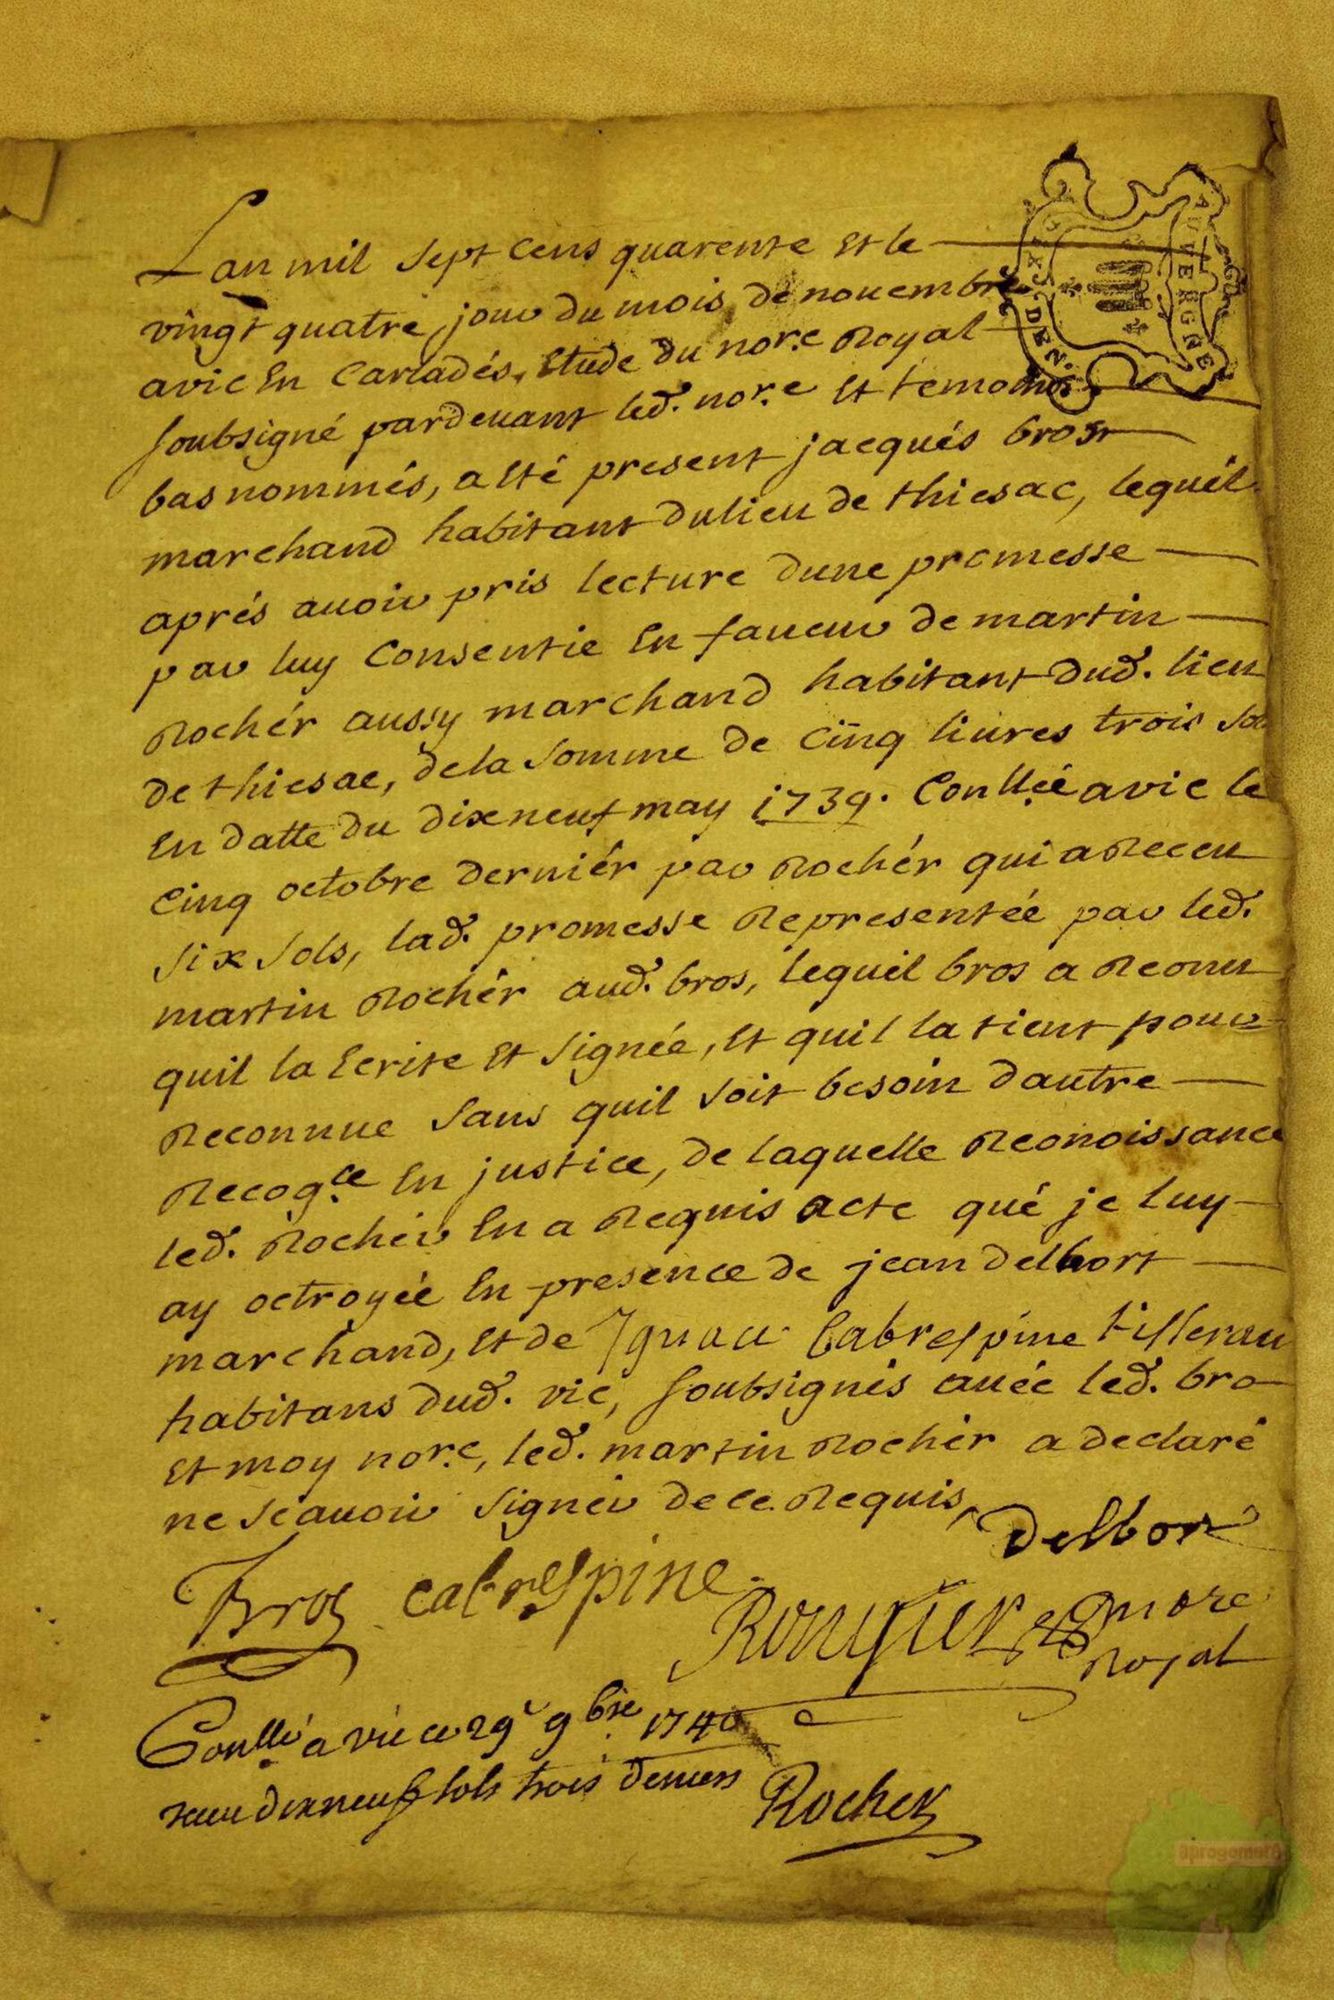 Lan mil sept cens quarente et le
vingt quatre jour du mois de novembre
a vic En Carladés, Etude du nore. Royal
soubsigné pardevant led. nore. Et temoins
bas nommés, a Eté present jacqués bros
marchand habitant du lieu de thiesac, lequél
aprés avoir pris lecture dune promesse
par luy Consentie En faveur de martin
Rochér aussy marchand habitant dud. lieu
de thiesac, de la somme de Cinq livres trois sols
En datte du dixneuf may 1739. Conllée a vic le
Cinq octobre derniér par Rochér qui a Receu
six sols, lad. promesse Representée par led.
martin Rochér aud. bros, lequel bros a Reconu
quil la Ecrite Et signée, Et quil la tient pour
Reconnue sans quil soit besoin dautre
Recogce. En justice, de laquelle Reconoissance
led. Rocher En a Requis acte qué je luy
ay octroyée En presence de jean delbort
marchand, Et de Ignace Cabrespine tisseran
habitans dud. vic, soubsignés avéc led. bro
Et moy nore., led. martin Rochér a declaré
ne scavoir signer de ce Requis,
Delbort
Bros Cabrespine
Rougier nore
Royal
Conllé a vic ce 29e 9bre. 1740
receu dixneuf sols trois deniers
Rocher
AUVERGNE
SIX.DEN.
aprogemere